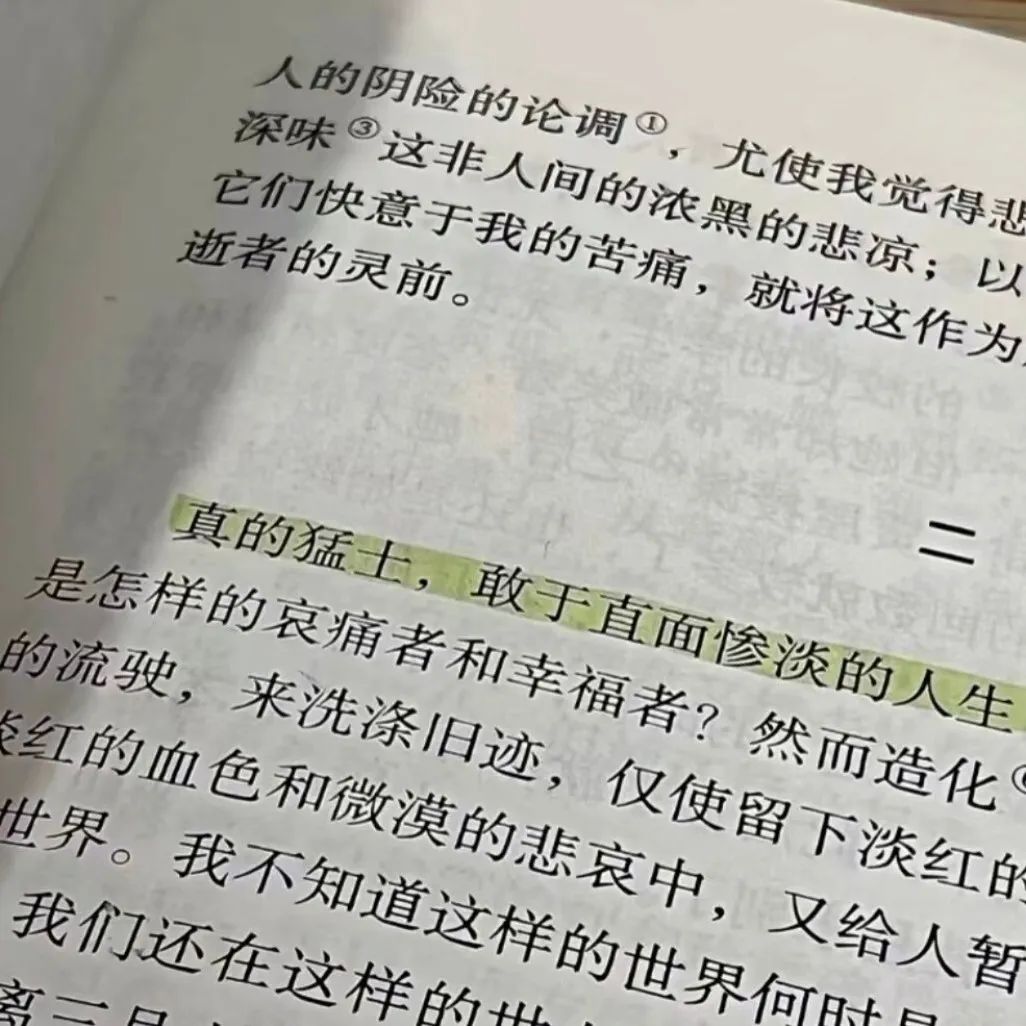 人的阴险的论调①，尤使我觉得悲
深味③这非人间的浓黑的悲凉；以
它们快意于我的苦痛，就将这作为
逝者的灵前。
二
真的猛士，敢于直面惨淡的人生
是怎样的哀痛者和幸福者？然而造化
的流驶，来洗涤旧迹，仅使留下淡红的
淡红的血色和微漠的悲哀中，又给人暂
世界。我不知道这样的世界何时是
我们还在这样的世
离三月